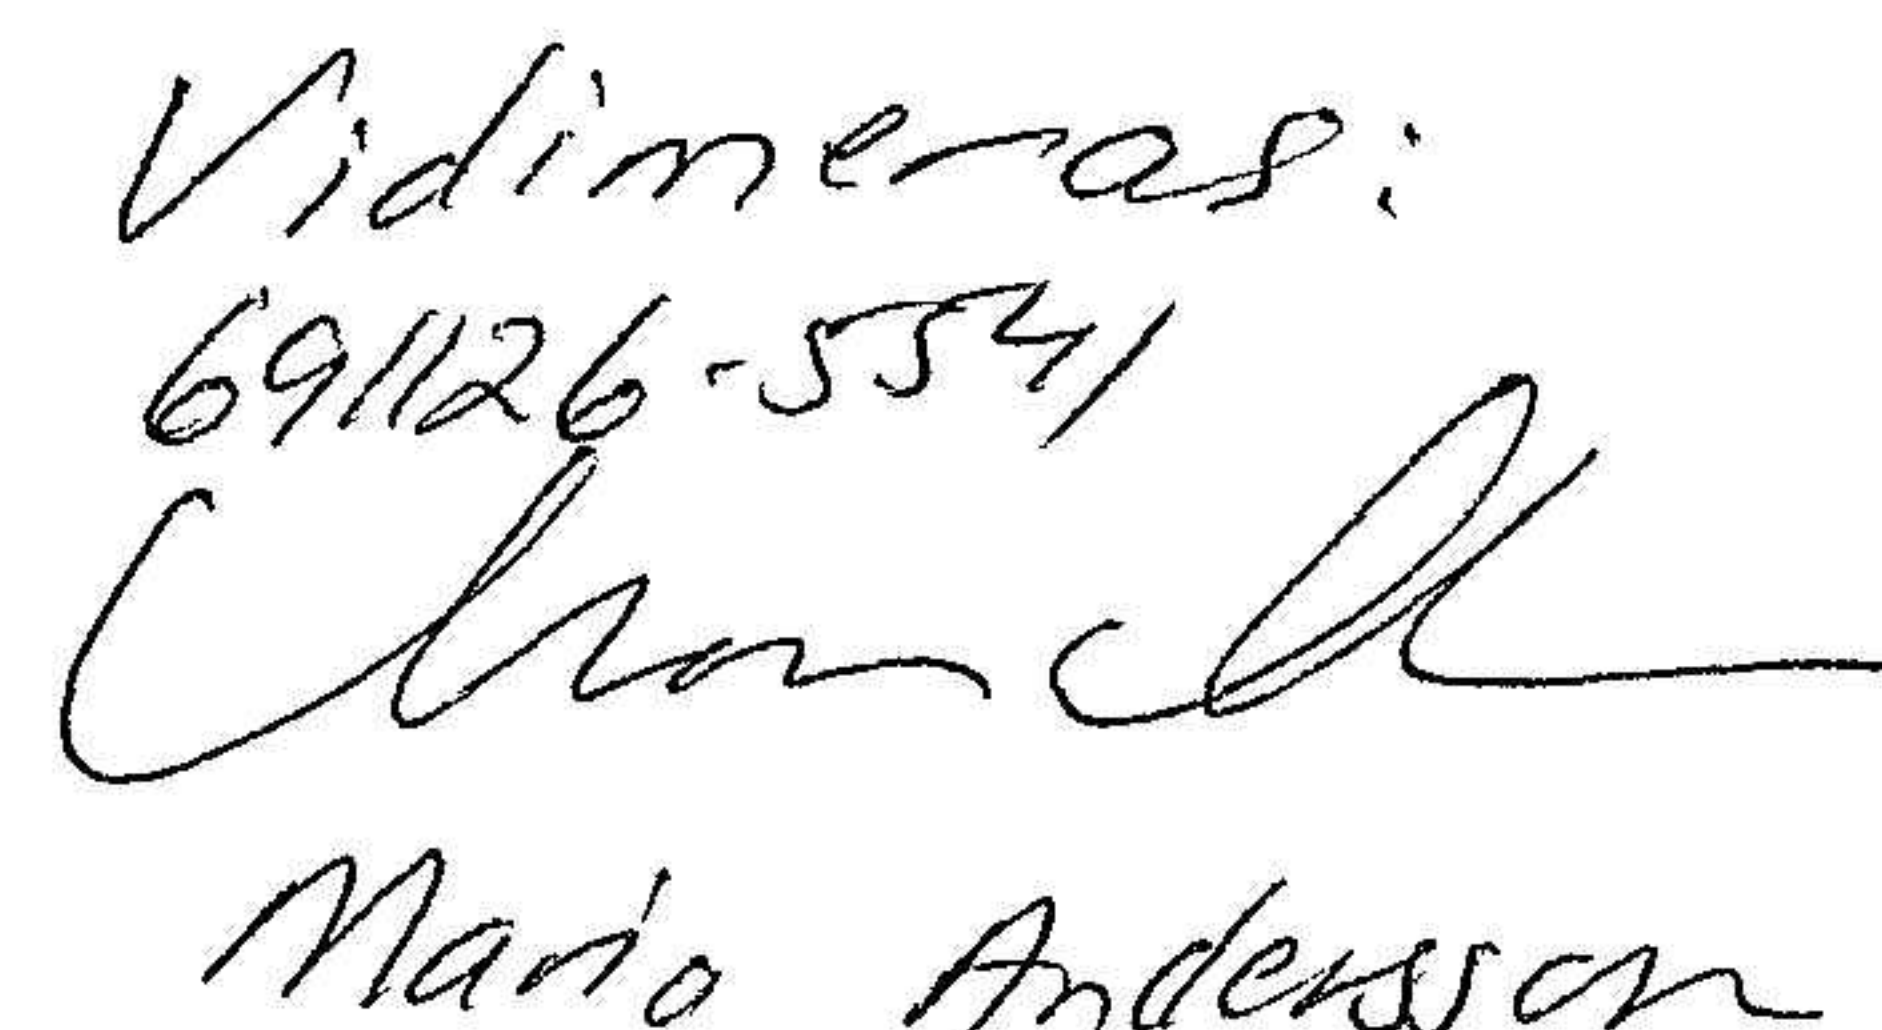 Vidimeras:
691126-5541
Mario Andersson